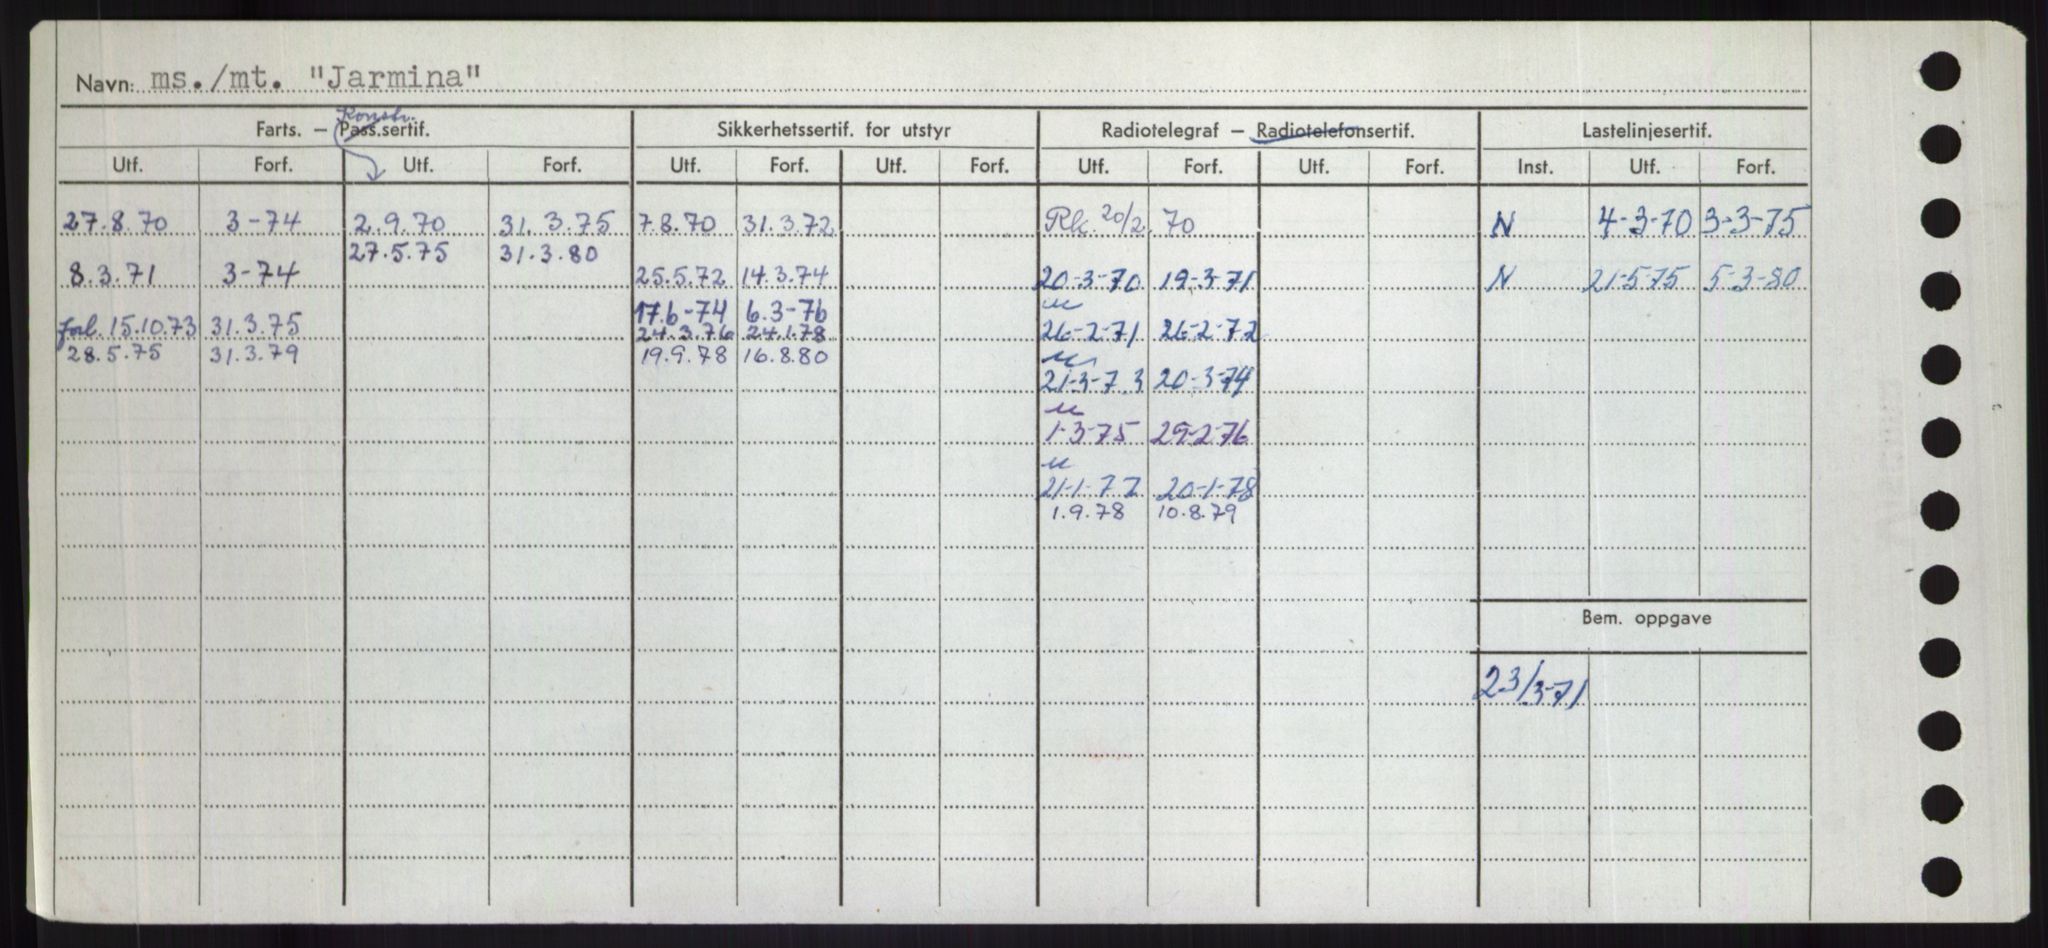 Navn: ms./mt. "Jarmina"
Konstr.
Farts. — Pass.sertif. Sikkerhetssertif. for utstyr Radiotelegraf — Radiotelefonsertif. Lastelinjesertif.
Utf. Forf. Utf. Forf. Utf. Forf. Utf. Forf. Utf. Forf. Utf. Forf. Inst. Utf. Forf.
27.8.70 3-74 2.9.70 31.3.75 7.8.70 31.3.72 Rk. 20/2 70 N 4-3-70 3-3-75
27.5.75 31.3.80
8.3.71 3-74 25.5.72 14.3.74 20-3-70 19-3-71 N 21-5-75 5-3-80
17.6-74 6.3-76 u
forl. 15.10.73 31.3.75 24.3.76 24.1.78 26-2-71 26-2-72
28.5.75 31.3.79 19.9.78 16.8.80 u
21-3-73 20-3-74
u
1-3-75 29-2-76
u
21-1-77 20-1-78
1.9.78 10.8.79
Bem. oppgave
23/3-71